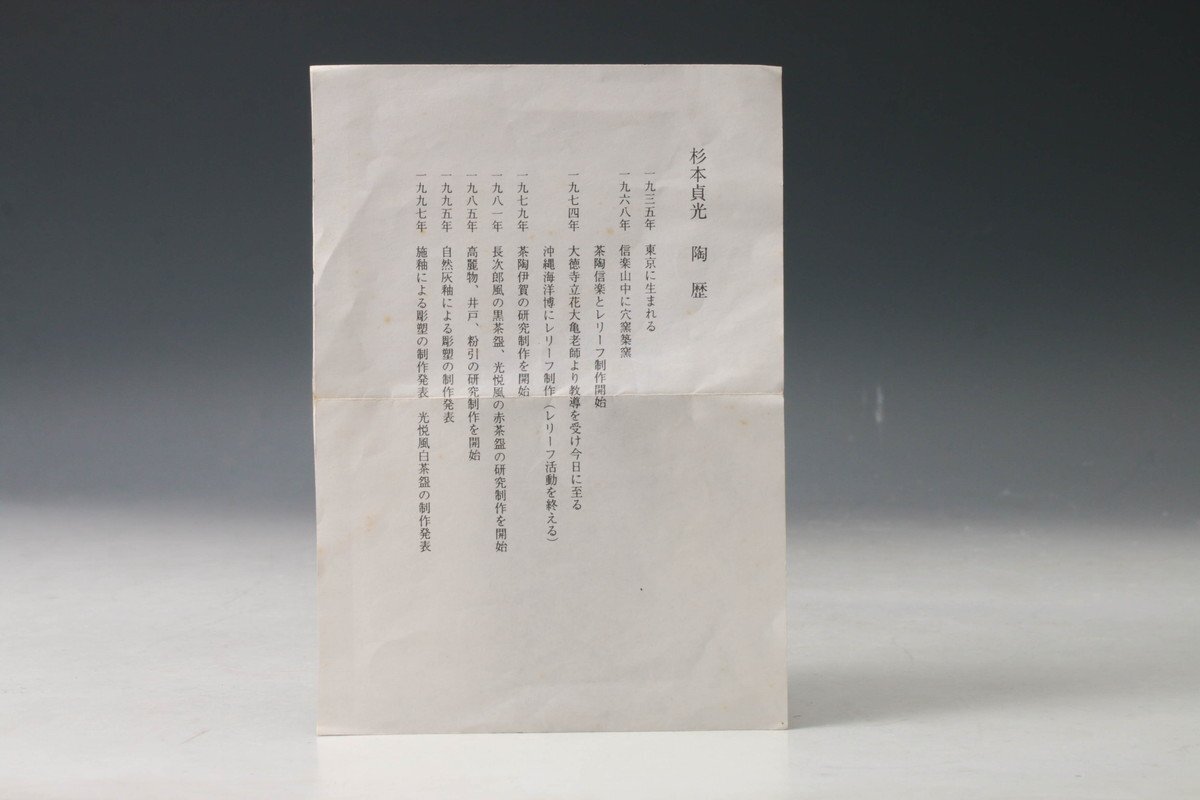 杉本貞光　陶歴
一九三五年　東京に生まれる
一九六八年　信楽山中に穴窯築窯
茶陶信楽とレリーフ制作開始
一九七四年　大徳寺立花大亀老師より教導を受け今日に至る
沖縄海洋博にレリーフ制作（レリーフ活動を終える）
一九七九年　茶陶伊賀の研究制作を開始
一九八一年　長次郎風の黒茶盌、光悦風の赤茶盌の研究制作を開始
一九八五年　高麗物、井戸、粉引の研究制作を開始
一九九五年　自然灰釉による彫塑の制作発表
一九九七年　施釉による彫塑の制作発表　光悦風白茶盌の制作発表